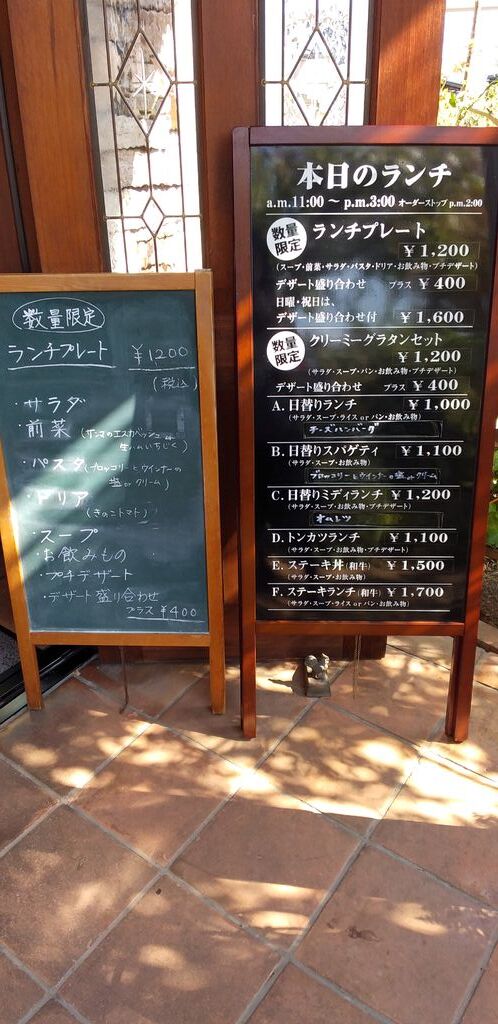 数量限定
ランチプレート ¥1200
(税込)
・サラダ
・前菜 (サンマのエスカベッシュ
生ハムいちじく)
・パスタ (ブロッコリーとウインナーの
塩orクリーム)
・ドリア
(きのこトマト)
・スープ
・お飲みもの
・プチデザート
・デザート盛り合わせ
プラス ¥400
本日のランチ
a.m.11:00 ～ p.m.3:00 オーダーストップ p.m.2:00
数量限定 ランチプレート
¥1,200
(スープ・前菜・サラダ・パスタ・ドリア・お飲み物・プチデザート)
デザート盛り合わせ プラス ¥400
日曜・祝日は、
デザート盛り合わせ付 ¥1,600
数量限定 クリーミーグラタンセット
¥1,200
(サラダ・スープ・パン・お飲み物・プチデザート)
デザート盛り合わせ プラス ¥400
A. 日替りランチ ¥1,000
(サラダ・スープ・ライス or パン・お飲み物)
チーズハンバーグ
B. 日替りスパゲティ ¥1,100
(サラダ・スープ・お飲み物)
ブロッコリーとウインナーの塩orクリーム
C. 日替りミディランチ ¥1,200
(サラダ・スープ・お飲み物・プチデザート)
オムレツ
D. トンカツランチ ¥1,100
(サラダ・スープ・お飲み物・プチデザート)
E. ステーキ丼(和牛) ¥1,500
(サラダ・スープ・お飲み物)
F. ステーキランチ(和牛) ¥1,700
(サラダ・スープ・ライス or パン・お飲み物)